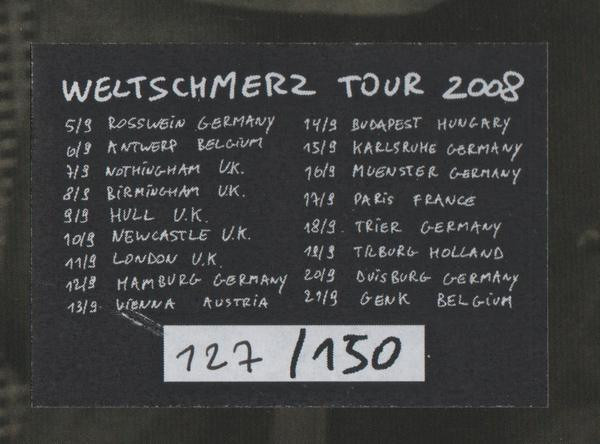 WELTSCHMERZ TOUR 2008
5/9 ROSSWEIN GERMANY
6/9 ANTWERP BELGIUM
7/9 NOTHINGHAM U.K.
8/9 BIRMINGHAM U.K.
9/9 HULL U.K.
10/9 NEWCASTLE U.K.
11/9 LONDON U.K.
12/9 HAMBURG GERMANY
13/9 VIENNA AUSTRIA
14/9 BUDAPEST HUNGARY
15/9 KARLSRUHE GERMANY
16/9 MUENSTER GERMANY
17/9 PARIS FRANCE
18/9 TRIER GERMANY
19/9 TILBURG HOLLAND
20/9 DUISBURG GERMANY
21/9 GENK BELGIUM
127/150